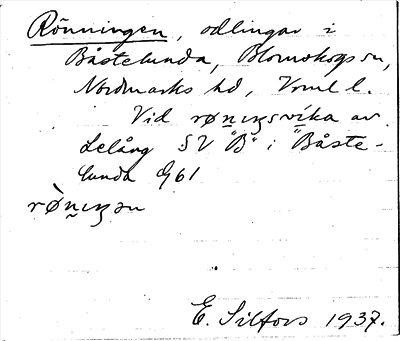 Rönningen, odlingar i
Båstelunda, Blomskogs sn,
Nordmarks hd, Vrml l.
Vid røṉıŋsvika av
Lelång SV "B" i "Båste-
lunda G61
rø̀ṉıŋən
E. Silfors 1937.